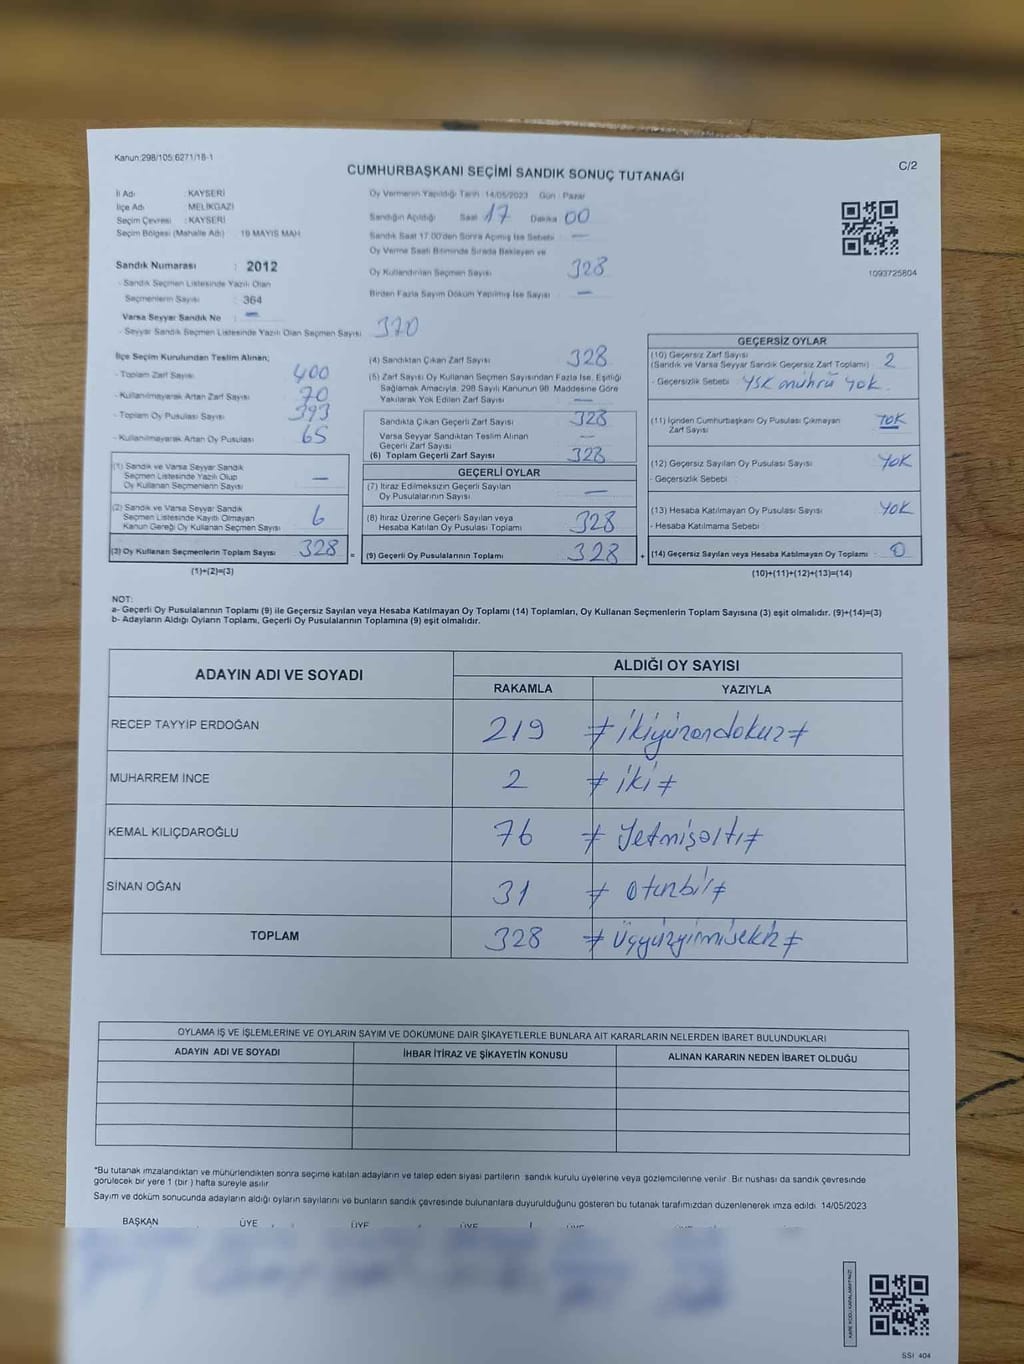 Kanun:298/105;6271/18-1
C/2
CUMHURBAŞKANI SEÇİMİ SANDIK SONUÇ TUTANAĞI
İl Adı : KAYSERİ
İlçe Adı : MELİKGAZİ
Seçim Çevresi : KAYSERİ
Seçim Bölgesi (Mahalle Adı) 19 MAYIS MAH.
Sandık Numarası : 2012
- Sandık Seçmen Listesinde Yazılı Olan
Seçmenlerin Sayısı : 364
Varsa Seyyar Sandık No : —
- Seyyar Sandık Seçmen Listesinde Yazılı Olan Seçmen Sayısı 320
Oy Vermenin Yapıldığı Tarih 14/05/2023 Gün : Pazar
Sandığın Açıldığı Saat 17 Dakika 00
Sandık Saat 17.00'den Sonra Açılmış İse Sebebi —
Oy Verme Saati Bitiminde Sırada Bekleyen ve
Oy Kullandırılan Seçmen Sayısı 328
Birden Fazla Sayım Döküm Yapılmış İse Sayısı —
1093725804
İlçe Seçim Kurulundan Teslim Alınan;
- Toplam Zarf Sayısı 400
- Kullanılmayarak Artan Zarf Sayısı 70
- Toplam Oy Pusulası Sayısı 393
- Kullanılmayarak Artan Oy Pusulası 65
(1) Sandık ve Varsa Seyyar Sandık
Seçmen Listesinde Yazılı Olup
Oy Kullanan Seçmenlerin Sayısı —
(2) Sandık ve Varsa Seyyar Sandık
Seçmen Listesinde Kayıtlı Olmayan
Kanun Gereği Oy Kullanan Seçmen Sayısı 6
(3) Oy Kullanan Seçmenlerin Toplam Sayısı 328 =
(1)+(2)=(3)
(4) Sandıktan Çıkan Zarf Sayısı 328
(5) Zarf Sayısı Oy Kullanan Seçmen Sayısından Fazla İse, Eşitliği
Sağlamak Amacıyla, 298 Sayılı Kanunun 98. Maddesine Göre
Yakılarak Yok Edilen Zarf Sayısı —
Sandıkta Çıkan Geçerli Zarf Sayısı 328
Varsa Seyyar Sandıktan Teslim Alınan
Geçerli Zarf Sayısı —
(6) Toplam Geçerli Zarf Sayısı 328
GEÇERLİ OYLAR
(7) İtiraz Edilmeksizin Geçerli Sayılan
Oy Pusulalarının Sayısı —
(8) İtiraz Üzerine Geçerli Sayılan veya
Hesaba Katılan Oy Pusulası Toplamı 328
(9) Geçerli Oy Pusulalarının Toplamı 328 +
GEÇERSİZ OYLAR
(10) Geçersiz Zarf Sayısı
(Sandık ve Varsa Seyyar Sandık Geçersiz Zarf Toplamı) 2
- Geçersizlik Sebebi YSK mührü yok.
(11) İçinden Cumhurbaşkanı Oy Pusulası Çıkmayan
Zarf Sayısı YOK
(12) Geçersiz Sayılan Oy Pusulası Sayısı YOK
- Geçersizlik Sebebi
(13) Hesaba Katılmayan Oy Pusulası Sayısı YOK
- Hesaba Katılmama Sebebi
(14) Geçersiz Sayılan veya Hesaba Katılmayan Oy Toplamı 0
(10)+(11)+(12)+(13)=(14)
NOT:
a- Geçerli Oy Pusulalarının Toplamı (9) ile Geçersiz Sayılan veya Hesaba Katılmayan Oy Toplamı (14) Toplamları, Oy Kullanan Seçmenlerin Toplam Sayısına (3) eşit olmalıdır. (9)+(14)=(3)
b- Adayların Aldığı Oyların Toplamı, Geçerli Oy Pusulalarının Toplamına (9) eşit olmalıdır.
ADAYIN ADI VE SOYADI
ALDIĞI OY SAYISI
RAKAMLA YAZIYLA
RECEP TAYYİP ERDOĞAN 219 ≠ ikiyüzondokuz ≠
MUHARREM İNCE 2 ≠ iki ≠
KEMAL KILIÇDAROĞLU 76 ≠ Yetmişaltı ≠
SİNAN OĞAN 31 ≠ otuzbir ≠
TOPLAM 328 ≠ üçyüzyirmisekiz ≠
OYLAMA İŞ VE İŞLEMLERİNE VE OYLARIN SAYIM VE DÖKÜMÜNE DAİR ŞİKAYETLERLE BUNLARA AİT KARARLARIN NELERDEN İBARET BULUNDUKLARI
ADAYIN ADI VE SOYADI İHBAR İTİRAZ VE ŞİKAYETİN KONUSU ALINAN KARARIN NEDEN İBARET OLDUĞU
*Bu tutanak imzalandıktan ve mühürlendikten sonra seçime katılan adayların ve talep eden siyasi partilerin sandık kurulu üyelerine veya gözlemcilerine verilir. Bir nüshası da sandık çevresinde
görülecek bir yere 1 (bir ) hafta süreyle asılır.
Sayım ve döküm sonucunda adayların aldığı oyların sayılarını ve bunların sandık çevresinde bulunanlara duyurulduğunu gösteren bu tutanak tarafımızdan düzenlenerek imza edildi. 14/05/2023
BAŞKAN ÜYE ÜYE ÜYE ÜYE
SSİ 404